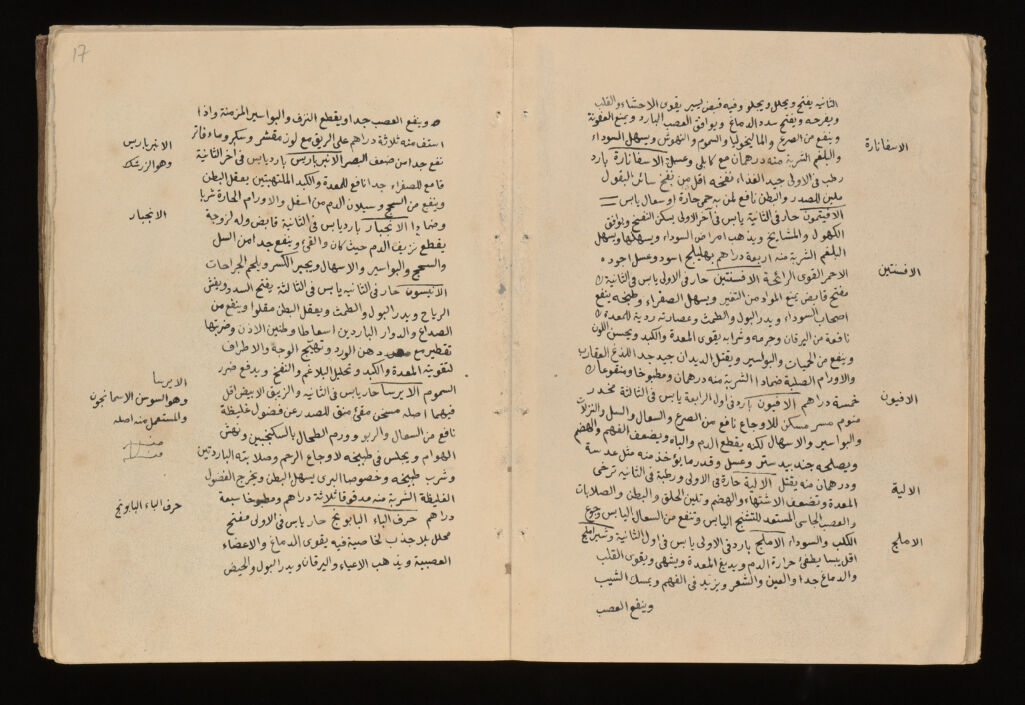 الثانية يفتح ويحلل ويجلو وفيه قبض يسير يقوى الاحشاء والقلب
ويفرحه ويفتح سدد الدماغ ويوافق العصب البارد ويمنع العفونة
وينفع من الصرع والمالنيخوليا والسموم والنهوش ويسهل السوداء
والبلغم الشربة منه درهمان مع كابلى وعسل الاسفانارة بارد
رطب فى الاولى جيد الغذاء نفخه اقل من نفخ سائر البقول
ملين للصدر والبطن نافع لمن به حمى حارة او سعال يابس
الافيتمون حار فى الثانية يابس فى آخر الاولى يسكن النفخ ويوافق
الكهول والمشايخ ويذهب امراض السوداء ويسهلها ويسهل
البلغم الشربة منه اربعة دراهم بهليلج اسود وعسل اجوده
الاحمر القوى الرائحة الافسنتين حار فى الاولى يابس فى الثانية
مفتح قابض يمنع المواد من التغير ويسهل الصفراء وطبيخه ينفع
اصحاب السوداء ويدر البول والطمث وعصارته ردية للمعدة
نافعة من اليرقان وجرمه وشرابه يقوى المعدة والكبد ويحسن اللون
وينفع من الحميات والبواسير ويقتل الديدان جيد جدا للذع العقارب
والاورام الصلبة ضمادا الشربة منه درهمان ومطبوخا ومنقوعا
خمسة دراهم الافيون بارد فى اول الرابعة يابس فى الثالثة مخدر
منوم مسكن للاوجاع نافع من الصرع والسعال والسل والنزلات
والبواسير والاسهال لكنه يقطع الدم والباه ويضعف الفهم والهضم
ويصلحه جندبيدستر وعسل وقدر ما يؤخذ منه مثل عدسة
ودرهمان منه يقتل الالية حارة فى الاولى ورطبة فى الثانية ترخى
المعدة وتضعف الاشتهاء والهضم وتلين الحلق والبطن والصلابات
والعصب الجاسى المستعد للتشنج اليابس وتنفع من السعال اليابس وجوع
الكلب والسوداء الاملج بارد فى الاولى يابس فى اول الثانية وشير املج
اقل يبسا يطفئ حرارة الدم ويدبغ المعدة ويشهى ويقوى القلب
والدماغ جدا والعين والشعر ويزيد فى الفهم ويمسك الشيب
وينفع العصب
الاسفانارة
الافسنتين
الافيون
الالية
الاملج
17
وينفع العصب جدا ويقطع النزف والبواسير المزمنة واذا
استف منه ثلاثة دراهم على الريق مع لوز مقشر وسكر وماء فاتر
نفع جدا من ضعف البصر الانبرباريس بارد يابس فى آخر الثانية
قامع للصفراء جدا نافع للمعدة والكبد الملتهبتين يعقل البطن
وينفع من السحج وسيلان الدم من اسفل والاورام الحارة شربا
وضمادا الانجبار بارد يابس فى الثانية قابض وله لزوجة
يقطع نزيف الدم حيث كان والقئ وينفع جدا من السل
والسحج والبواسير والاسهال ويجبر الكسر ويلحم الجراحات
الانيسون حار فى الثانية يابس فى الثالثة يفتح السدد ويفش
الرياح ويدر البول والطمث ويعقل البطن مقلوا وينفع من
الصداع والدوار الباردين اسعاطا وطنين الاذن وضربتها
تقطير مع دهن الورد وتهييج الوجه والاطراف
لتقوية المعدة والكبد وتحليل البلاغم والنفخ ويدفع ضرر
السموم الايرسا حار يابس فى الثانية والزبق الابيض اقل
فيهما اصله مسخن مقئ منق للصدر عن فضول غليظة
نافع من السعال والربو وورم الطحال بالسكنجبين ونهش
الهوام ويجلس فى طبيخه لاوجاع الرحم وصلابته الباردتين
وشرب طبيخه وخصوصا البرى يسهل البطن ويخرج الفضول
الغليظة الشربة منه مدقوقا ثلاثة دراهم ومطبوخا سبعة
دراهم حرف الباء البابونج حار يابس فى الاولى مفتح
محلل بلا جذب لخاصية فيه يقوى الدماغ والاعضاء
العصبية ويذهب الاعياء واليرقان ويدر البول والحيض
الانبرباريس
وهو الزرشك
الانجبار
الايرسا
وهو السوسن الاسمانجونى
والمستعمل منه اصله
حرف الباء البابونج